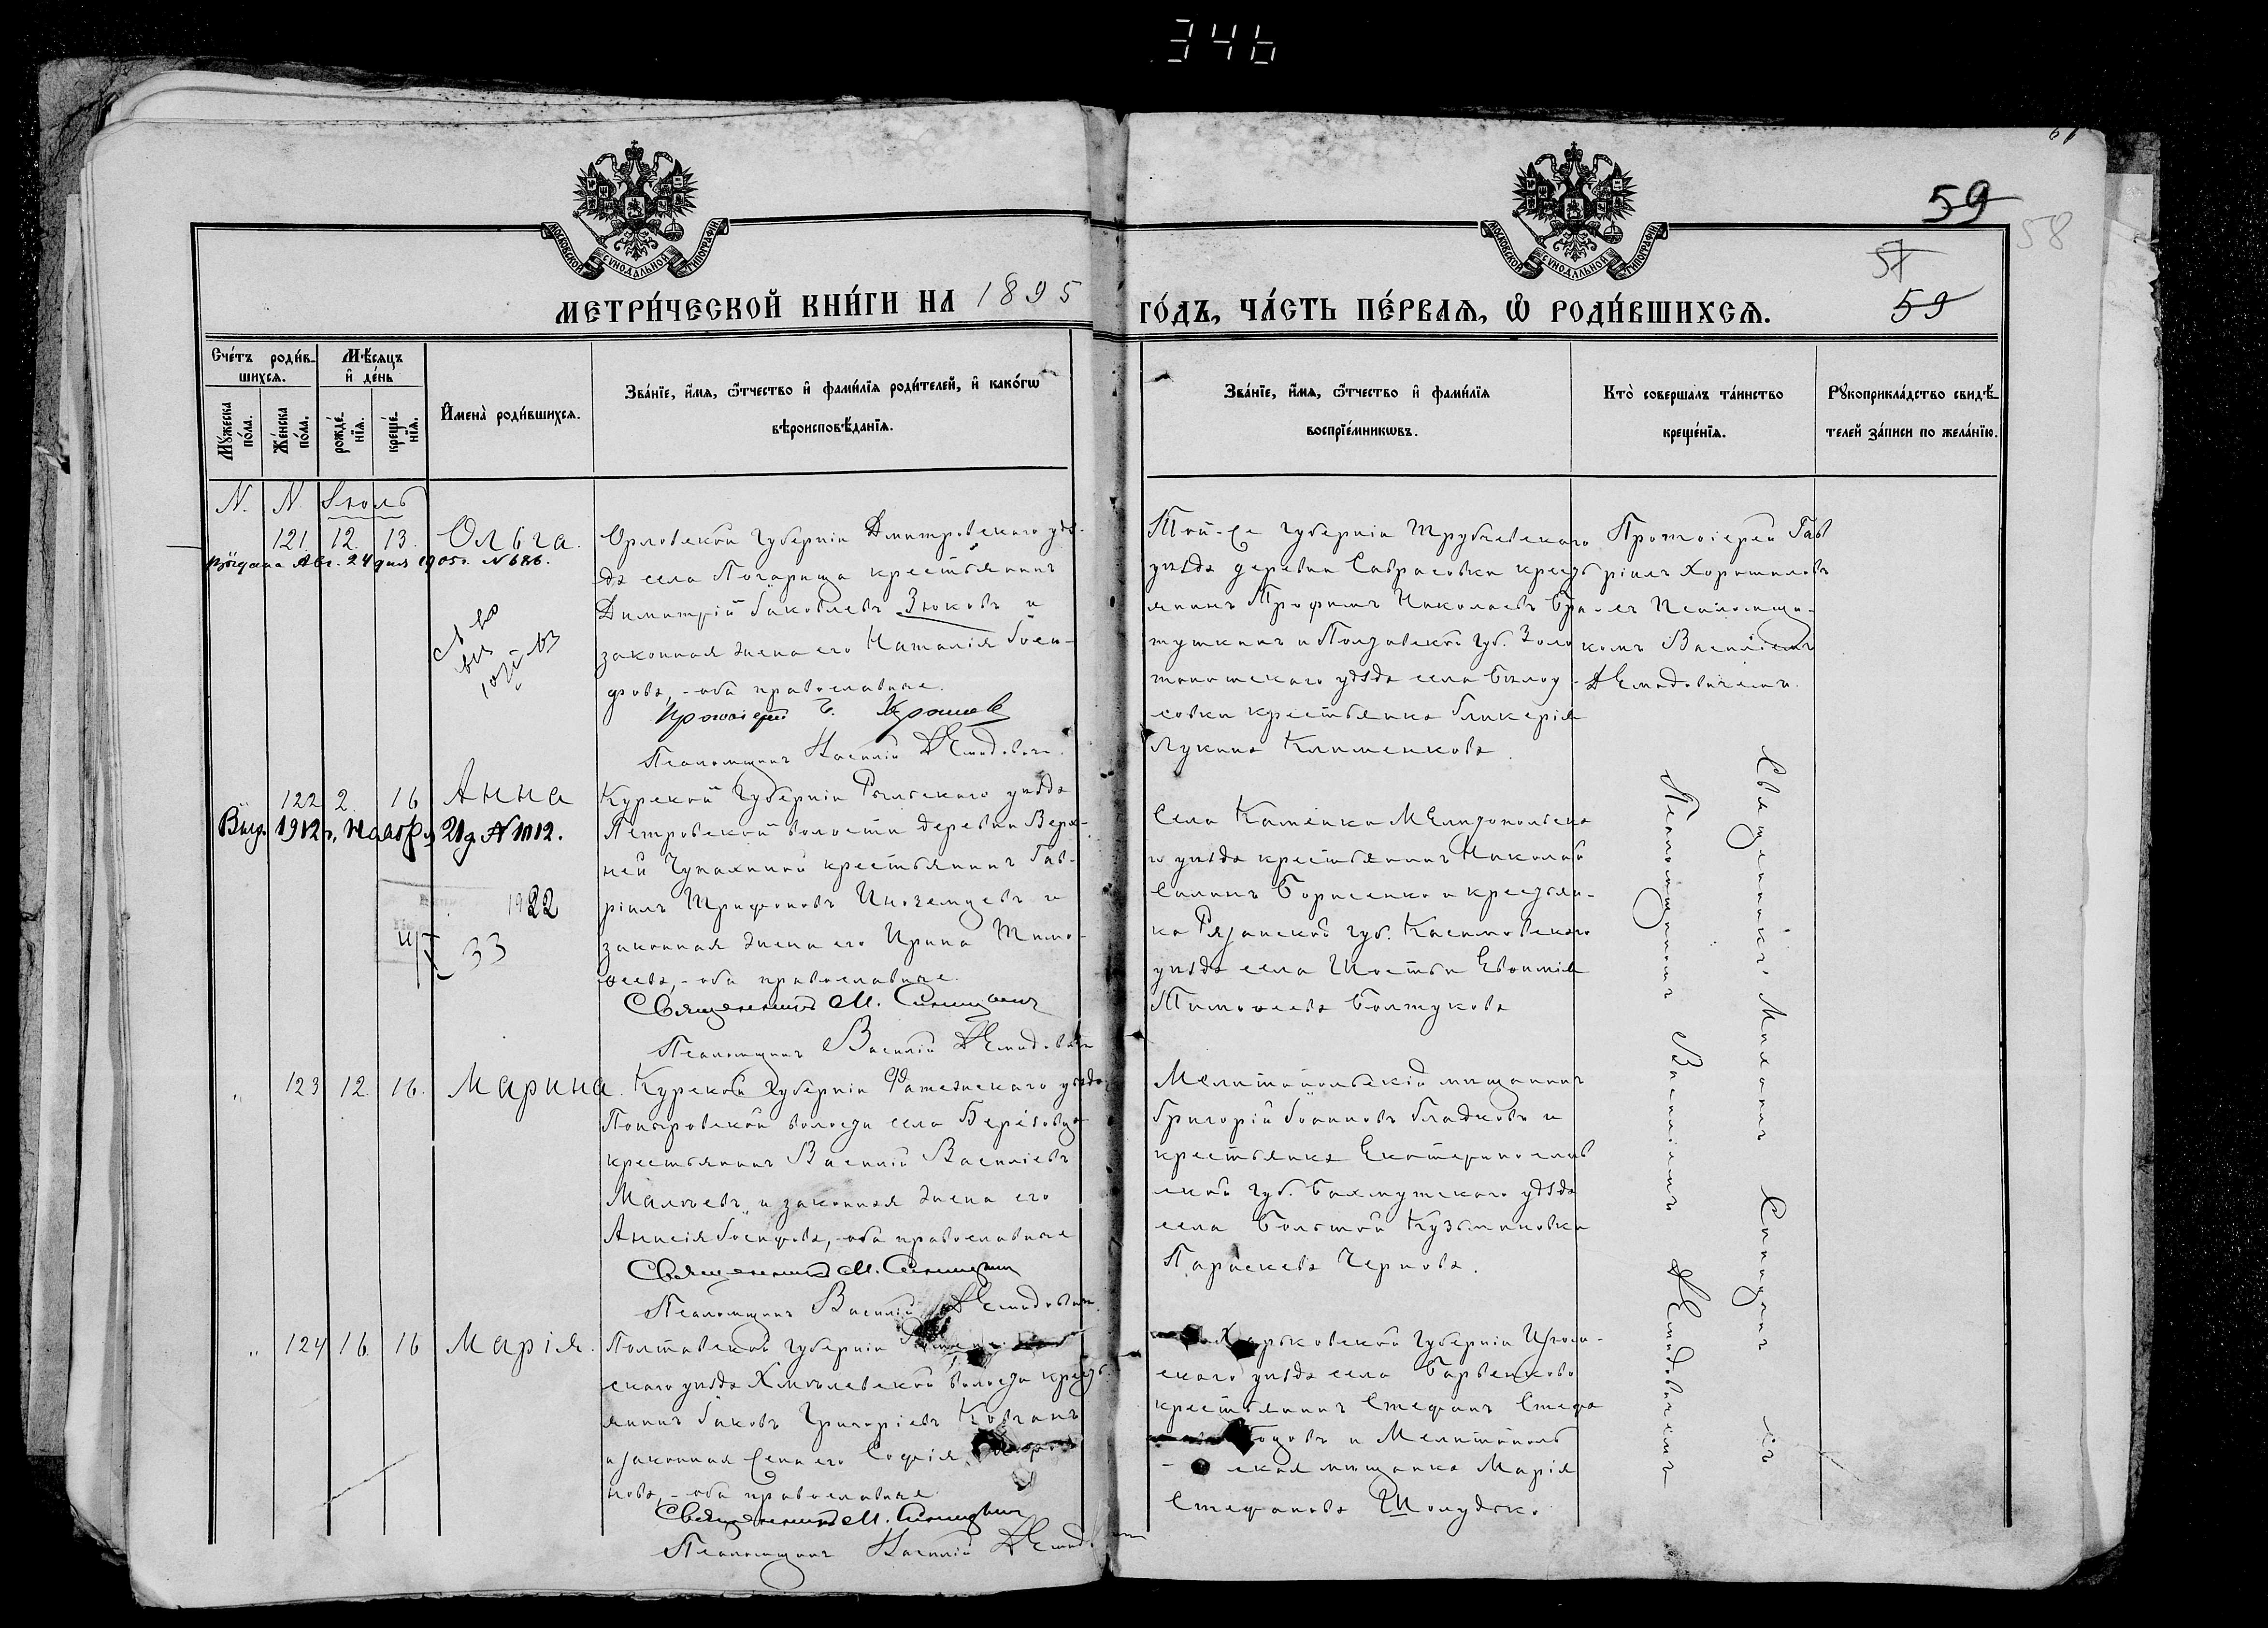 346
59
58
57
59
МОСКОВСКОЙ СУНОДАЛЬНОЙ ТИПОГРАФІИ
МОСКОВСКОЙ СУНОДАЛЬНОЙ ТИПОГРАФІИ
МЕТРИ́ЧЕСКОЙ КНИ́ГИ НА 1895 ГО́ДЪ, ЧА́СТЬ ПЕ́РВАѦ, Ѽ РОДИ́ВШИХСѦ.
Сче́тъ роди́в-
шихсѧ.
Мꙋ́жеска по́ла.
Же́нска по́ла.
Мѣ́сѧцъ и҆ де́нь
рожде́-нїѧ.
креще́-нїѧ.
И҆мена̀ роди́вшихсѧ.
Зва́нїе, и҆́мѧ, ѻ҆́тчество и҆ фами́лїѧ роди́телей, и҆ како́гѡ
вѣроисповѣ́данїѧ.
Зва́нїе, и҆́мѧ, ѻ҆́тчество и҆ фами́лїѧ
воспрїе́мникѡвъ.
Кто̀ соверша́лъ та́инство
креще́нїѧ.
Рꙋкоприкла́дство свидѣ́-
телей за́писи по жела́нїю.
N. N Іюль
121. 12. 13. Ольга.
Выдана Авг. 24 дня 1905г. N 686.
Орловской губерніи Дмитровскаго уѣз-
да села Погарища крестьянинъ
Димитрій Іаковлевъ Зюковъ и
законная жена его Наталія Іоси-
фова, - оба православные.
Протоіерей Г.
Псаломщикъ Василій Демидович
Той-же губерніи Трубчевскаго
уѣзда деревни Саврасовки крестъ
янинъ Трофимъ Николаевъ
и Полтавской губ. Золо
тоношскаго уѣзда села Бѣлоу-
совки крестьянка Гликерія
Лукина Клименкова.
Протоіерей Гав
ріилъ Хорошиловъ
съ Псаломщи-
комъ Василіемъ
Демидовичемъ.
122 2. 16 Анна
Выд. 1912 г. Ноября 21 д. N 1112.
1922
33
Курской губерніи Рыльскаго уѣзда
Петровской волости деревни Верх-
ней Чупахиной крестьянинъ Гав-
ріилъ Трифоновъ Иноземцевъ и
законная жена его Ирина Тимо-
ѳеева, - оба православные.
Священникъ М. Синицынъ
Псаломщикъ Василій Демидович
Села Каменки Мелитопольска
го уѣзда крестьянинъ Николай
Борисенко и крестьян-
ка Рязанской губ. Касимовскаго
уѣзда села Шостьи Евѳимія
Тимоѳеева Болтукова
123 12. 16. Марина.
Курской губерніи Фатежскаго уѣзда
волости села Берёзовца
крестьянинъ Василій Василіевъ
и законная жена его
Анисія Іосифова, - оба православные
Священникъ М. Синицынъ
Псаломщикъ Василій Демидович.
Мелитопольскій мѣщанинъ
Григорій Іоанновъ Гладковъ и
крестьянка Екатеринослав
ской губ. Бахмутскаго уѣзда
села Большой Кузьминовки
Параскева Чернова.
124 16. 16 Марія.
Полтавской губерніи
скаго уѣзда Хмѣлевской волости крестъ
янинъ Іаковъ Григоріевъ Ковганъ
и законная жена его Софія
нова, - оба православные
Священникъ М. Синицынъ
Псаломщикъ Василій Демидов
Харьковской губерніи Изюм-
скаго уѣзда села Барвенково
крестьянинъ Стефанъ Стефа
и Мелитополь
ская мѣщанка Марія
Стефанова Шолудько.
Священникъ Михаилъ Синицынъ съ
Псаломщикомъ Василіемъ Демидовичемъ